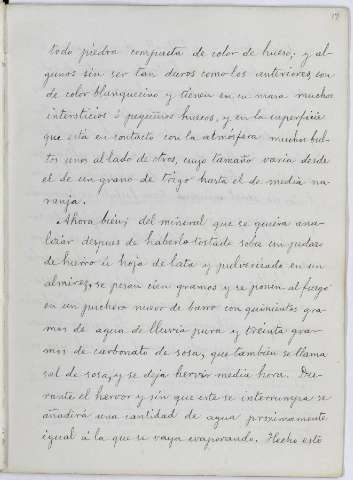 todo piedra compacta de color de hueso, y al-
gunos sin ser tan duros como los anteriores, son
de color blanquecino y tienen en su masa muchos
intersticios ó pequeños huecos, y en la superficie
que está en contacto con la atmósfera muchos bul-
tos uno al lado de otros, cuyo tamaño varía desde
el de un grano de trigo hasta el de media na-
ranja.
Ahora bien; del mineral que se quiera ana-
lizar despues de haberlo tostado sobre un pedazo
de hierro ú hoja de lata y pulverizado en un
almirez, se pesan cien gramos y se ponen al fuego
en un puchero nuevo de barro con quinientos gra-
mos de agua de lluvia pura y treinta gra-
mos de carbonato de sosa, que tambien se llama
sal de sosa, y se deja hervir media hora. Du-
rante el hervor y sin que este se interrumpa se
añadirá una cantidad de agua proximamente
igual á la que se vaya evaporando. Hecho esto